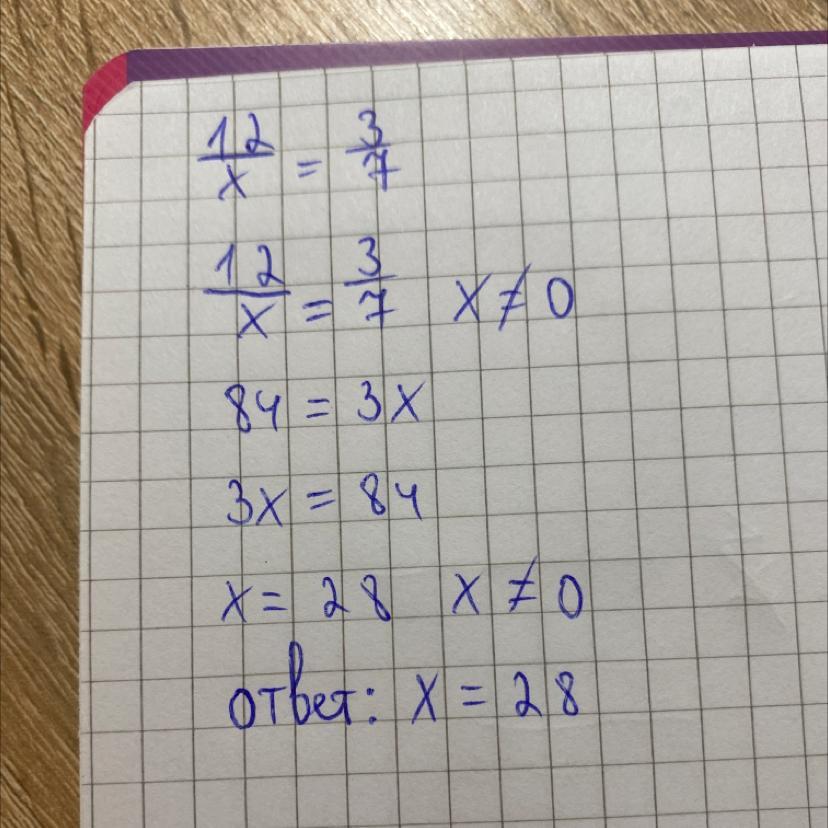 12/x = 3/7
12/x = 3/7 x ≠ 0
84 = 3x
3x = 84
x = 28 x ≠ 0
ответ: x = 28